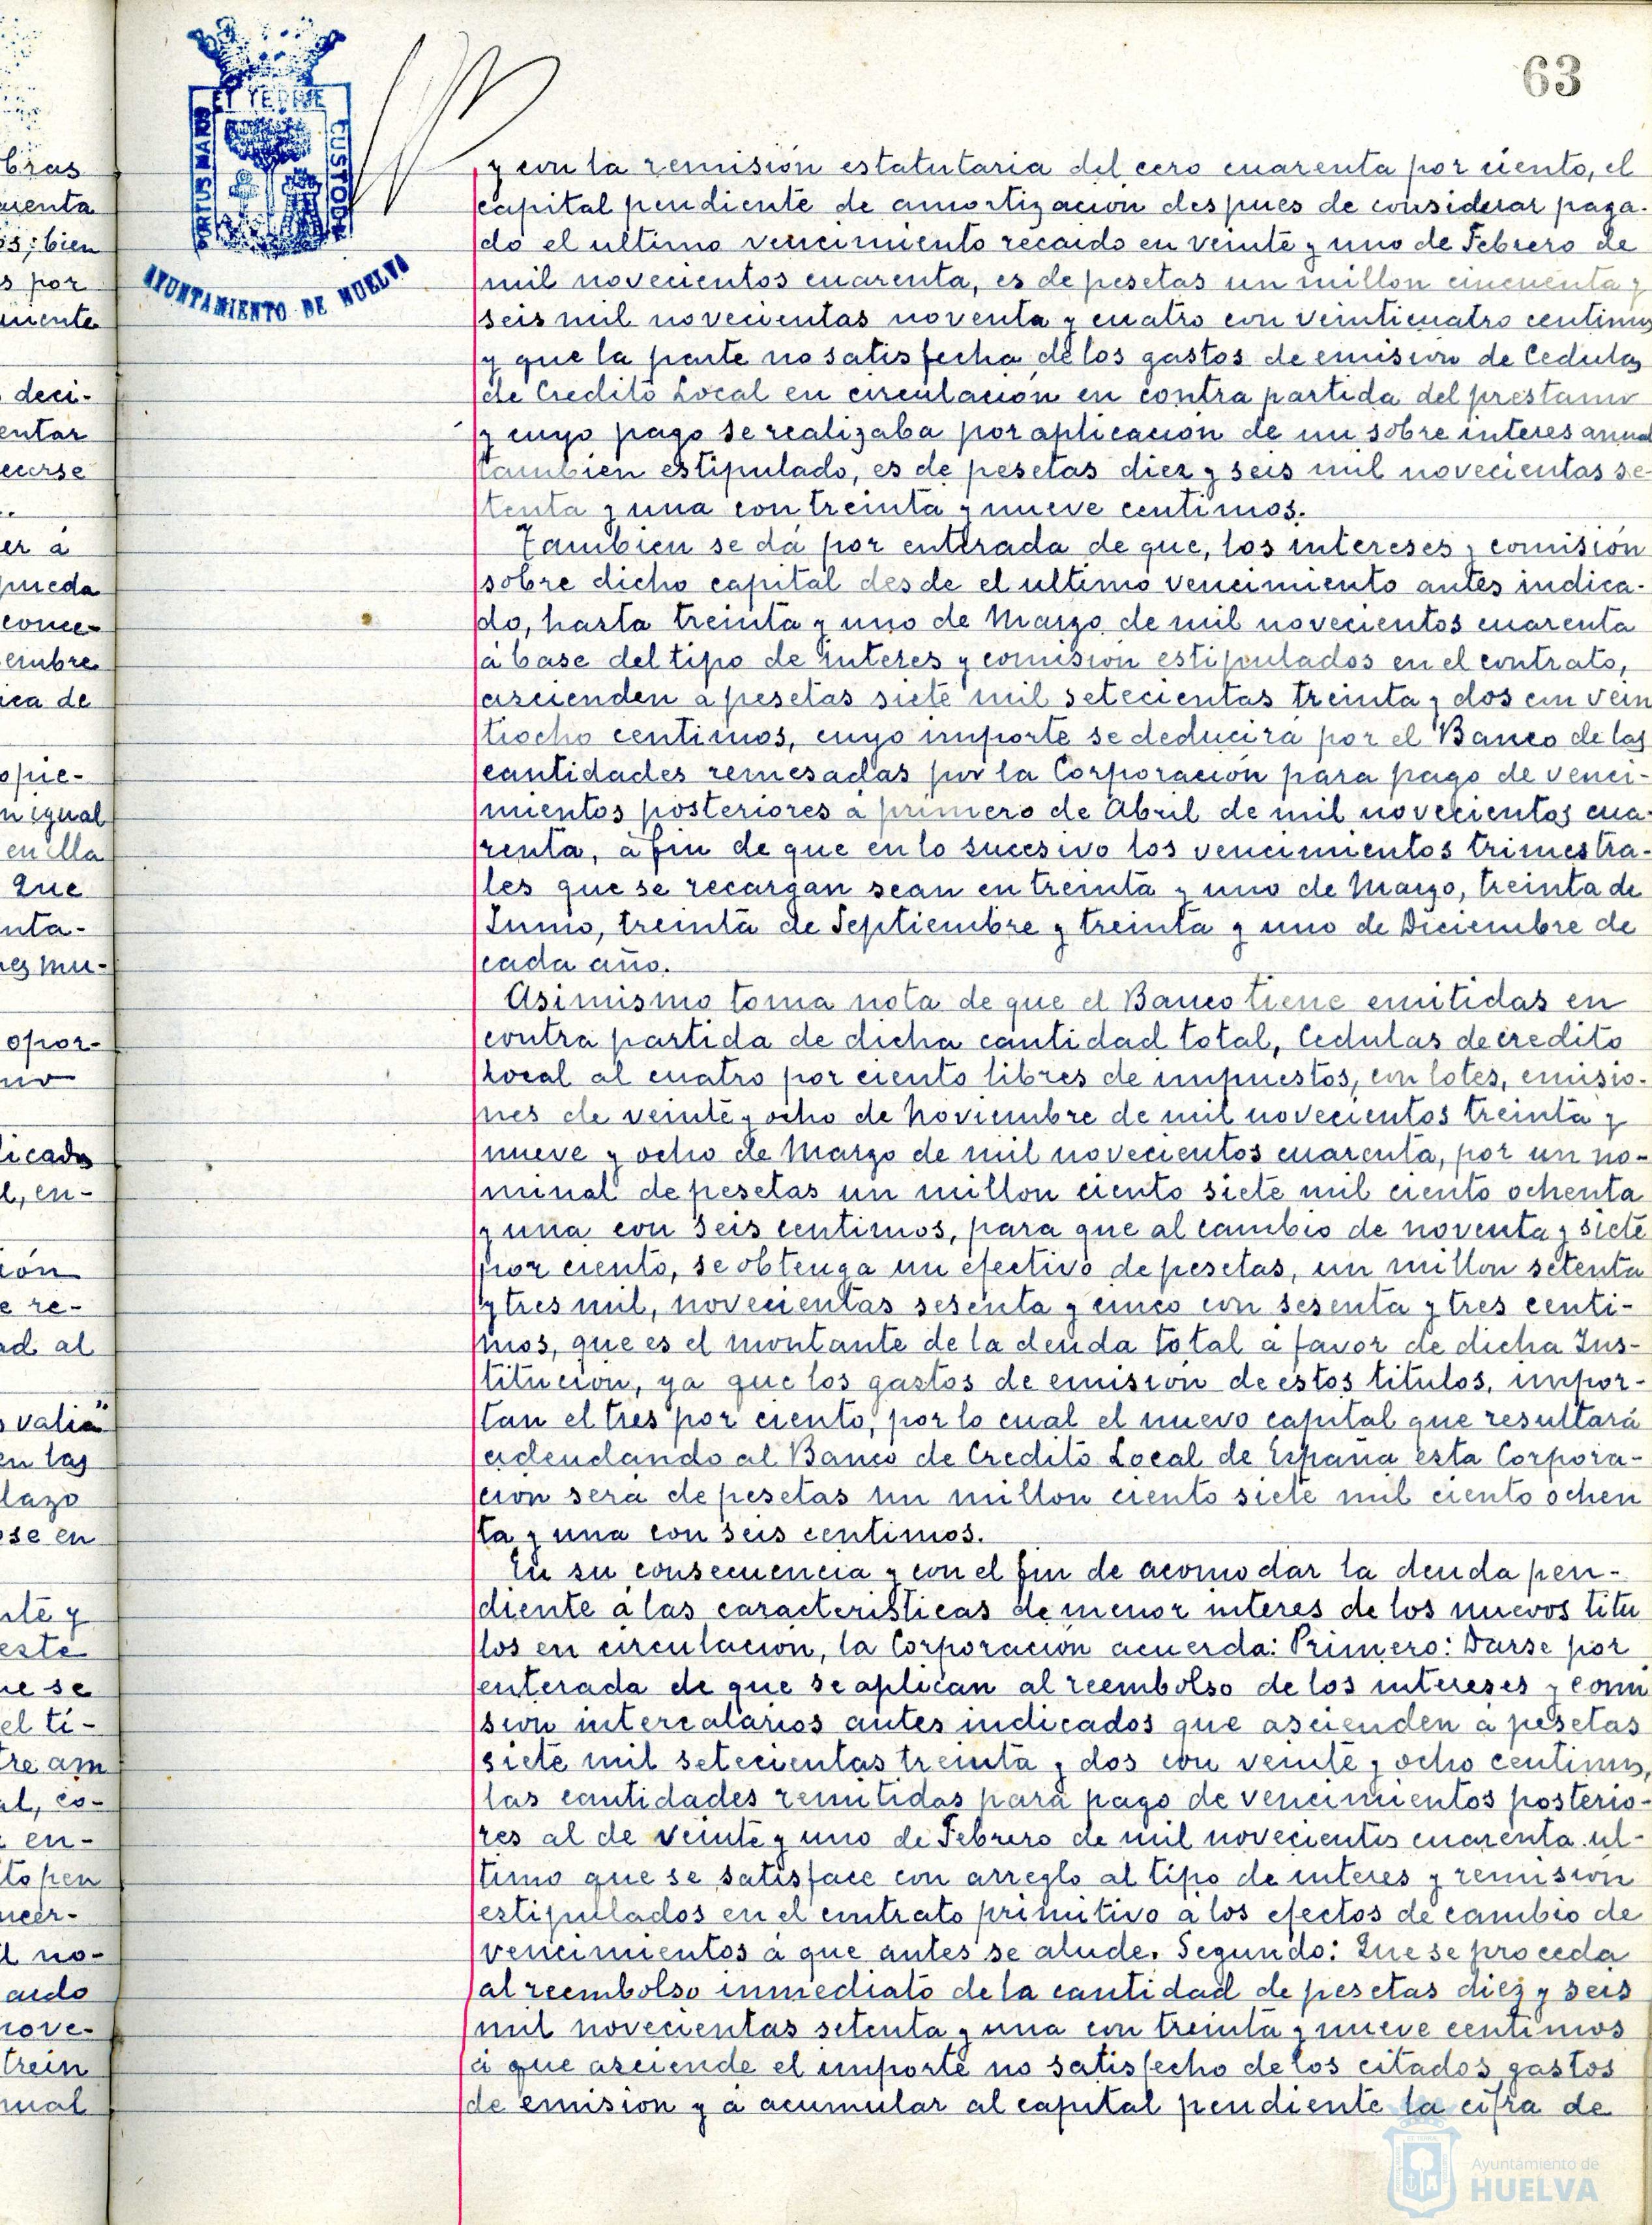 bras
uenta
os; bien
s por
mente
deci-
entar
ecerse
er á
pueda
conce-
embre
ica de
opie-
n igual
en illa
Que
nta-
nes mu-
opor-
no
licado
l, en-
ión
e re-
ad al
s valia"
en las
lazo
ose en
nte y
este
ue se
el ti-
tre am
al, co-
en-
to pen
l no-
ardo
nove-
trein
nual
63
PORTUS MARIS ET TERRE CUSTODIA
AYUNTAMIENTO DE HUELVA
y con la remisión estatutaria del cero cuarenta por ciento, el
capital pendiente de amortización despues de considerar paga-
do el ultimo vencimiento recaido en veinte y uno de Febrero de
mil novecientos cuarenta, es de pesetas un millon cincuenta y
seis mil novecientas noventa y cuatro con veinticuatro centimos
y que la parte no satisfecha de los gastos de emisión de Cedulas
de Credito Local en circulación en contra partida del prestamo
y cuyo pago se realizaba por aplicación de un sobre interes anual
tambien estipulado, es de pesetas diez y seis mil novecientas se-
tenta y una con treinta y nueve centimos.
Tambien se dá por enterada de que, los intereses y comisión
sobre dicho capital desde el ultimo vencimiento antes indica-
do, hasta treinta y uno de Marzo de mil novecientos cuarenta
á base del tipo de interes y comision estipulados en el contrato,
ascienden a pesetas siete mil setecientas treinta y dos con vein
tiocho centimos, cuyo importe se deducirá por el Banco de las
cantidades remesadas por la Corporación para pago de venci-
mientos posteriores á primero de Abril de mil novecientos cua-
renta, á fin de que en lo sucesivo los vencimientos trimestra-
les que se recargan sean en treinta y uno de Marzo, treinta de
Junio, treinta de Septiembre y treinta y uno de Diciembre de
cada año.
Asimismo toma nota de que el Banco tiene emitidas en
contra partida de dicha cantidad total, Cedulas de credito
Local al cuatro por ciento libres de impuestos, con lotes, emisio-
nes de veinte y ocho de Noviembre de mil novecientos treinta y
nueve y ocho de Marzo de mil novecientos cuarenta, por un no-
minal de pesetas un millon ciento siete mil ciento ochenta
y una con seis centimos, para que al cambio de noventa y siete
por ciento, se obtenga un efectivo de pesetas, un millon setenta
y tres mil, novecientas sesenta y cinco con sesenta y tres centi-
mos, que es el montante de la deuda total á favor de dicha Ins-
titución, ya que los gastos de emisión de estos titulos, impor-
tan el tres por ciento, por lo cual el nuevo capital que resultará
adeudando al Banco de Credito Local de España esta Corpora-
ción será de pesetas un millon ciento siete mil ciento ochen
ta y una con seis centimos.
En su consecuencia y con el fin de acomodar la deuda pen-
diente á las caracteristicas de menor interes de los nuevos titu
los en circulación, la Corporación acuerda: Primero: Darse por
enterada de que se aplican al reembolso de los intereses y comi
sion intercalarios antes indicados que ascienden a pesetas
siete mil setecientas treinta y dos con veinte y ocho centimos,
las cantidades remitidas para pago de vencimientos posterio-
res al de veinte y uno de Febrero de mil novecientos cuarenta ul-
timo que se satisface con arreglo al tipo de interes y remisión
estipulados en el contrato primitivo á los efectos de cambio de
vencimientos á que antes se alude. Segundo: Que se proceda
al reembolso inmediato de la cantidad de pesetas diez y seis
mil novecientas setenta y una con treinta y nueve centimos
á que asciende el importe no satisfecho de los citados gastos
de emision y á acumular al capital pendiente la cifra de
Ayuntamiento de
HUELVA